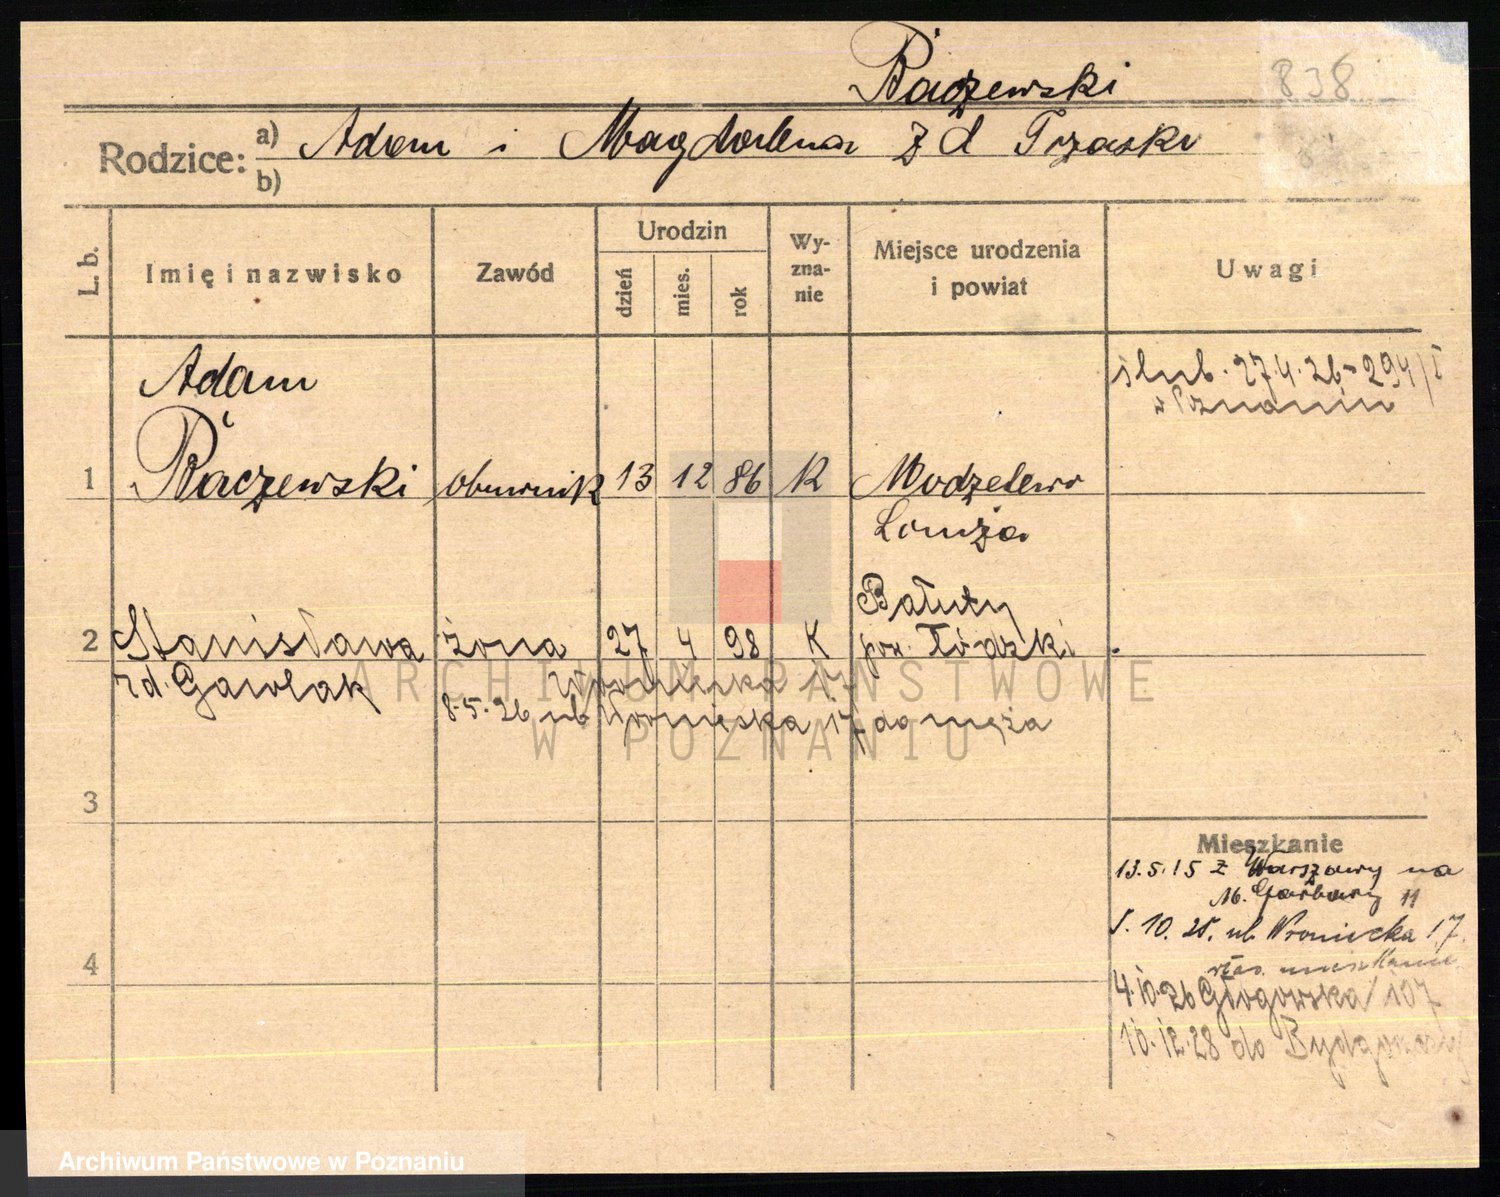 Raczewski
838
Rodzice: a) Adam i Magdalena z d Trzaska
b)
L. b.
Imię i nazwisko
Zawód
Urodzin
dzień
mies.
rok
Wy-
zna-
nie
Miejsce urodzenia
i powiat
Uwagi
ślub. 27.4.26 - 294/I
w Poznaniu
Adam
1 Raczewski obuwnik 13 12 86 R Modzelewo
Łomża
Bałuty
2 Stanisława żona 27 4 98 K pow. Łódzki
rd. Gawlak Wroniecka 17
8.5.26 ub Wroniecka 17 do męża
3
Mieszkanie
13.5.15 z Warszawy na
M. Garbary 11
5.10.25. ub Wroniecka 17.
włas. mieszkanie
4
4 10.26 Głogowska 107
10.12.28 do Bydgoszczy
ARCHIWUM PAŃSTWOWE
W POZNANIU
Archiwum Państwowe w Poznaniu